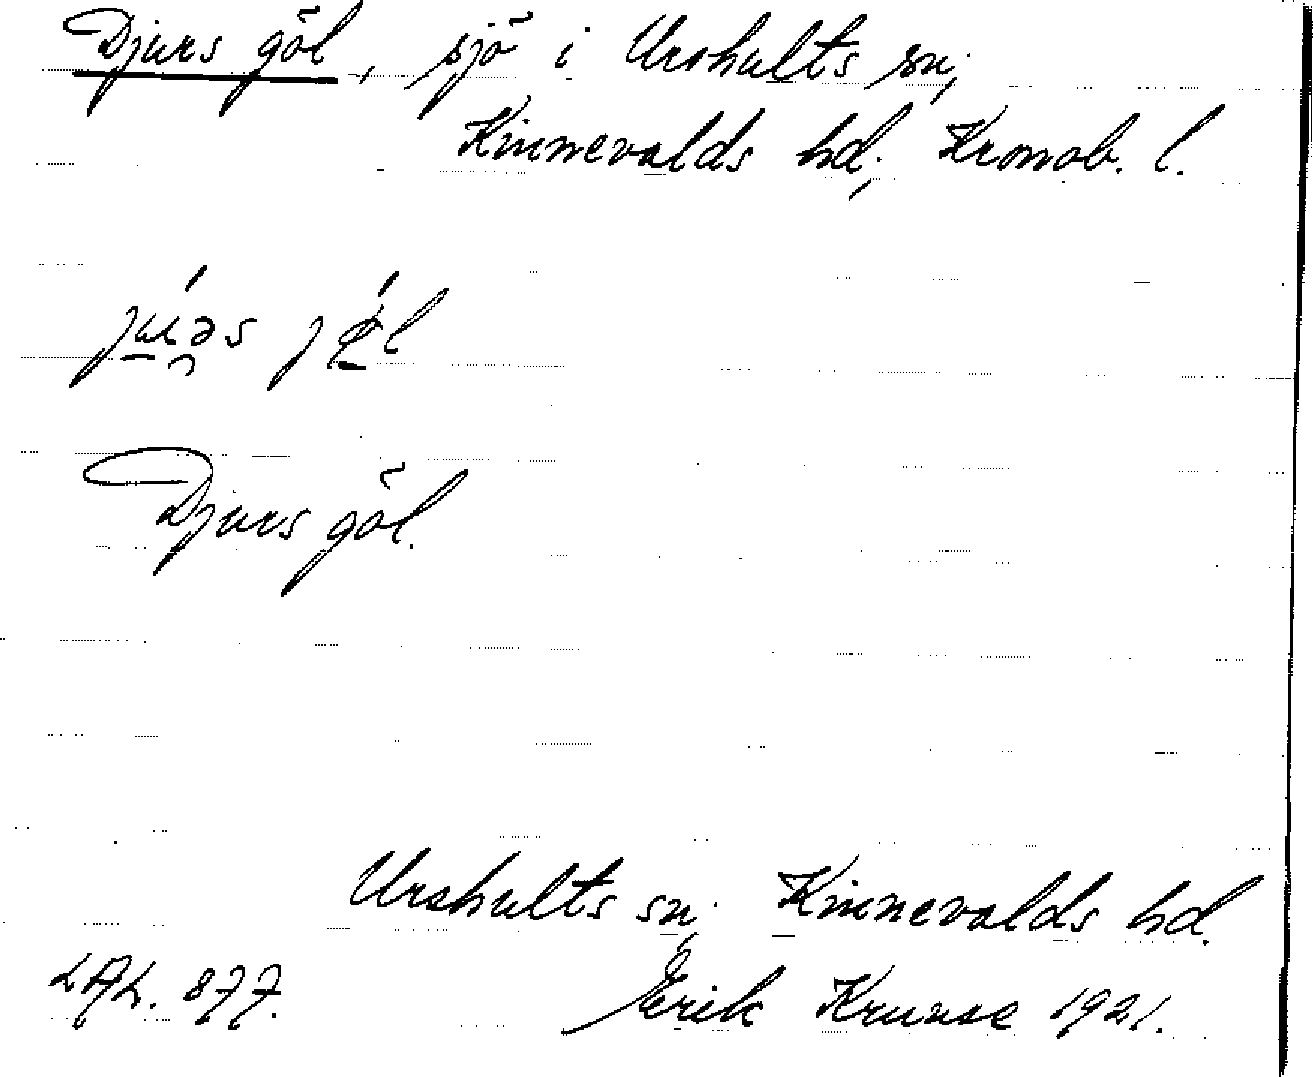 Djurs göl, sjö i Urshults sn,
Kinnevalds hd, Kronob. l.
Djurs göl.
Urshults sn. Kinnevalds hd.
LAL. 877. Erik Kruuse 1921.